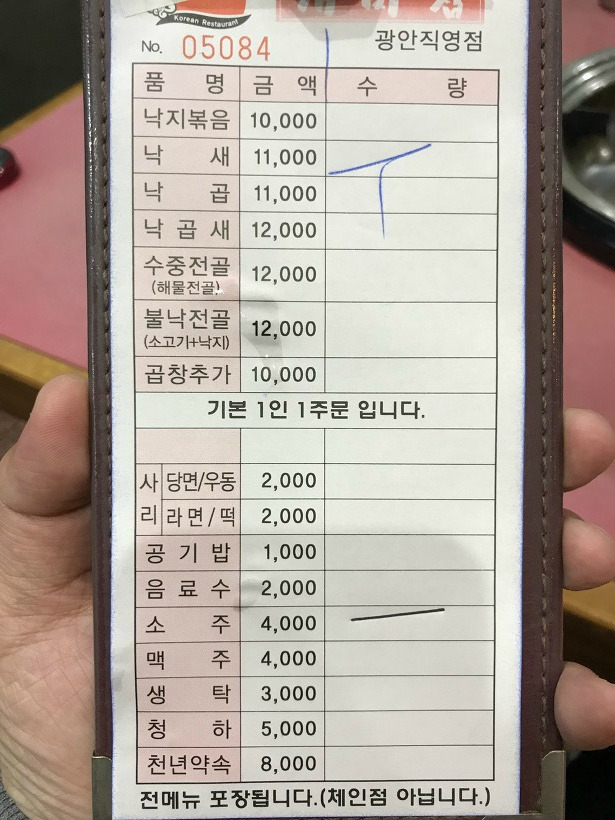 Korean Restaurant
No. 05084 광안직영점
품 명 금 액 수 량
낙지볶음 10,000
낙 새 11,000
낙 곱 11,000
낙 곱 새 12,000
수중전골 12,000
(해물전골)
불낙전골 12,000
(소고기+낙지)
곱창추가 10,000
기본 1인 1주문 입니다.
사리 당면/우동 2,000
라면/떡 2,000
공 기 밥 1,000
음 료 수 2,000
소 주 4,000
맥 주 4,000
생 탁 3,000
청 하 5,000
천년약속 8,000
전메뉴 포장됩니다.(체인점 아닙니다.)